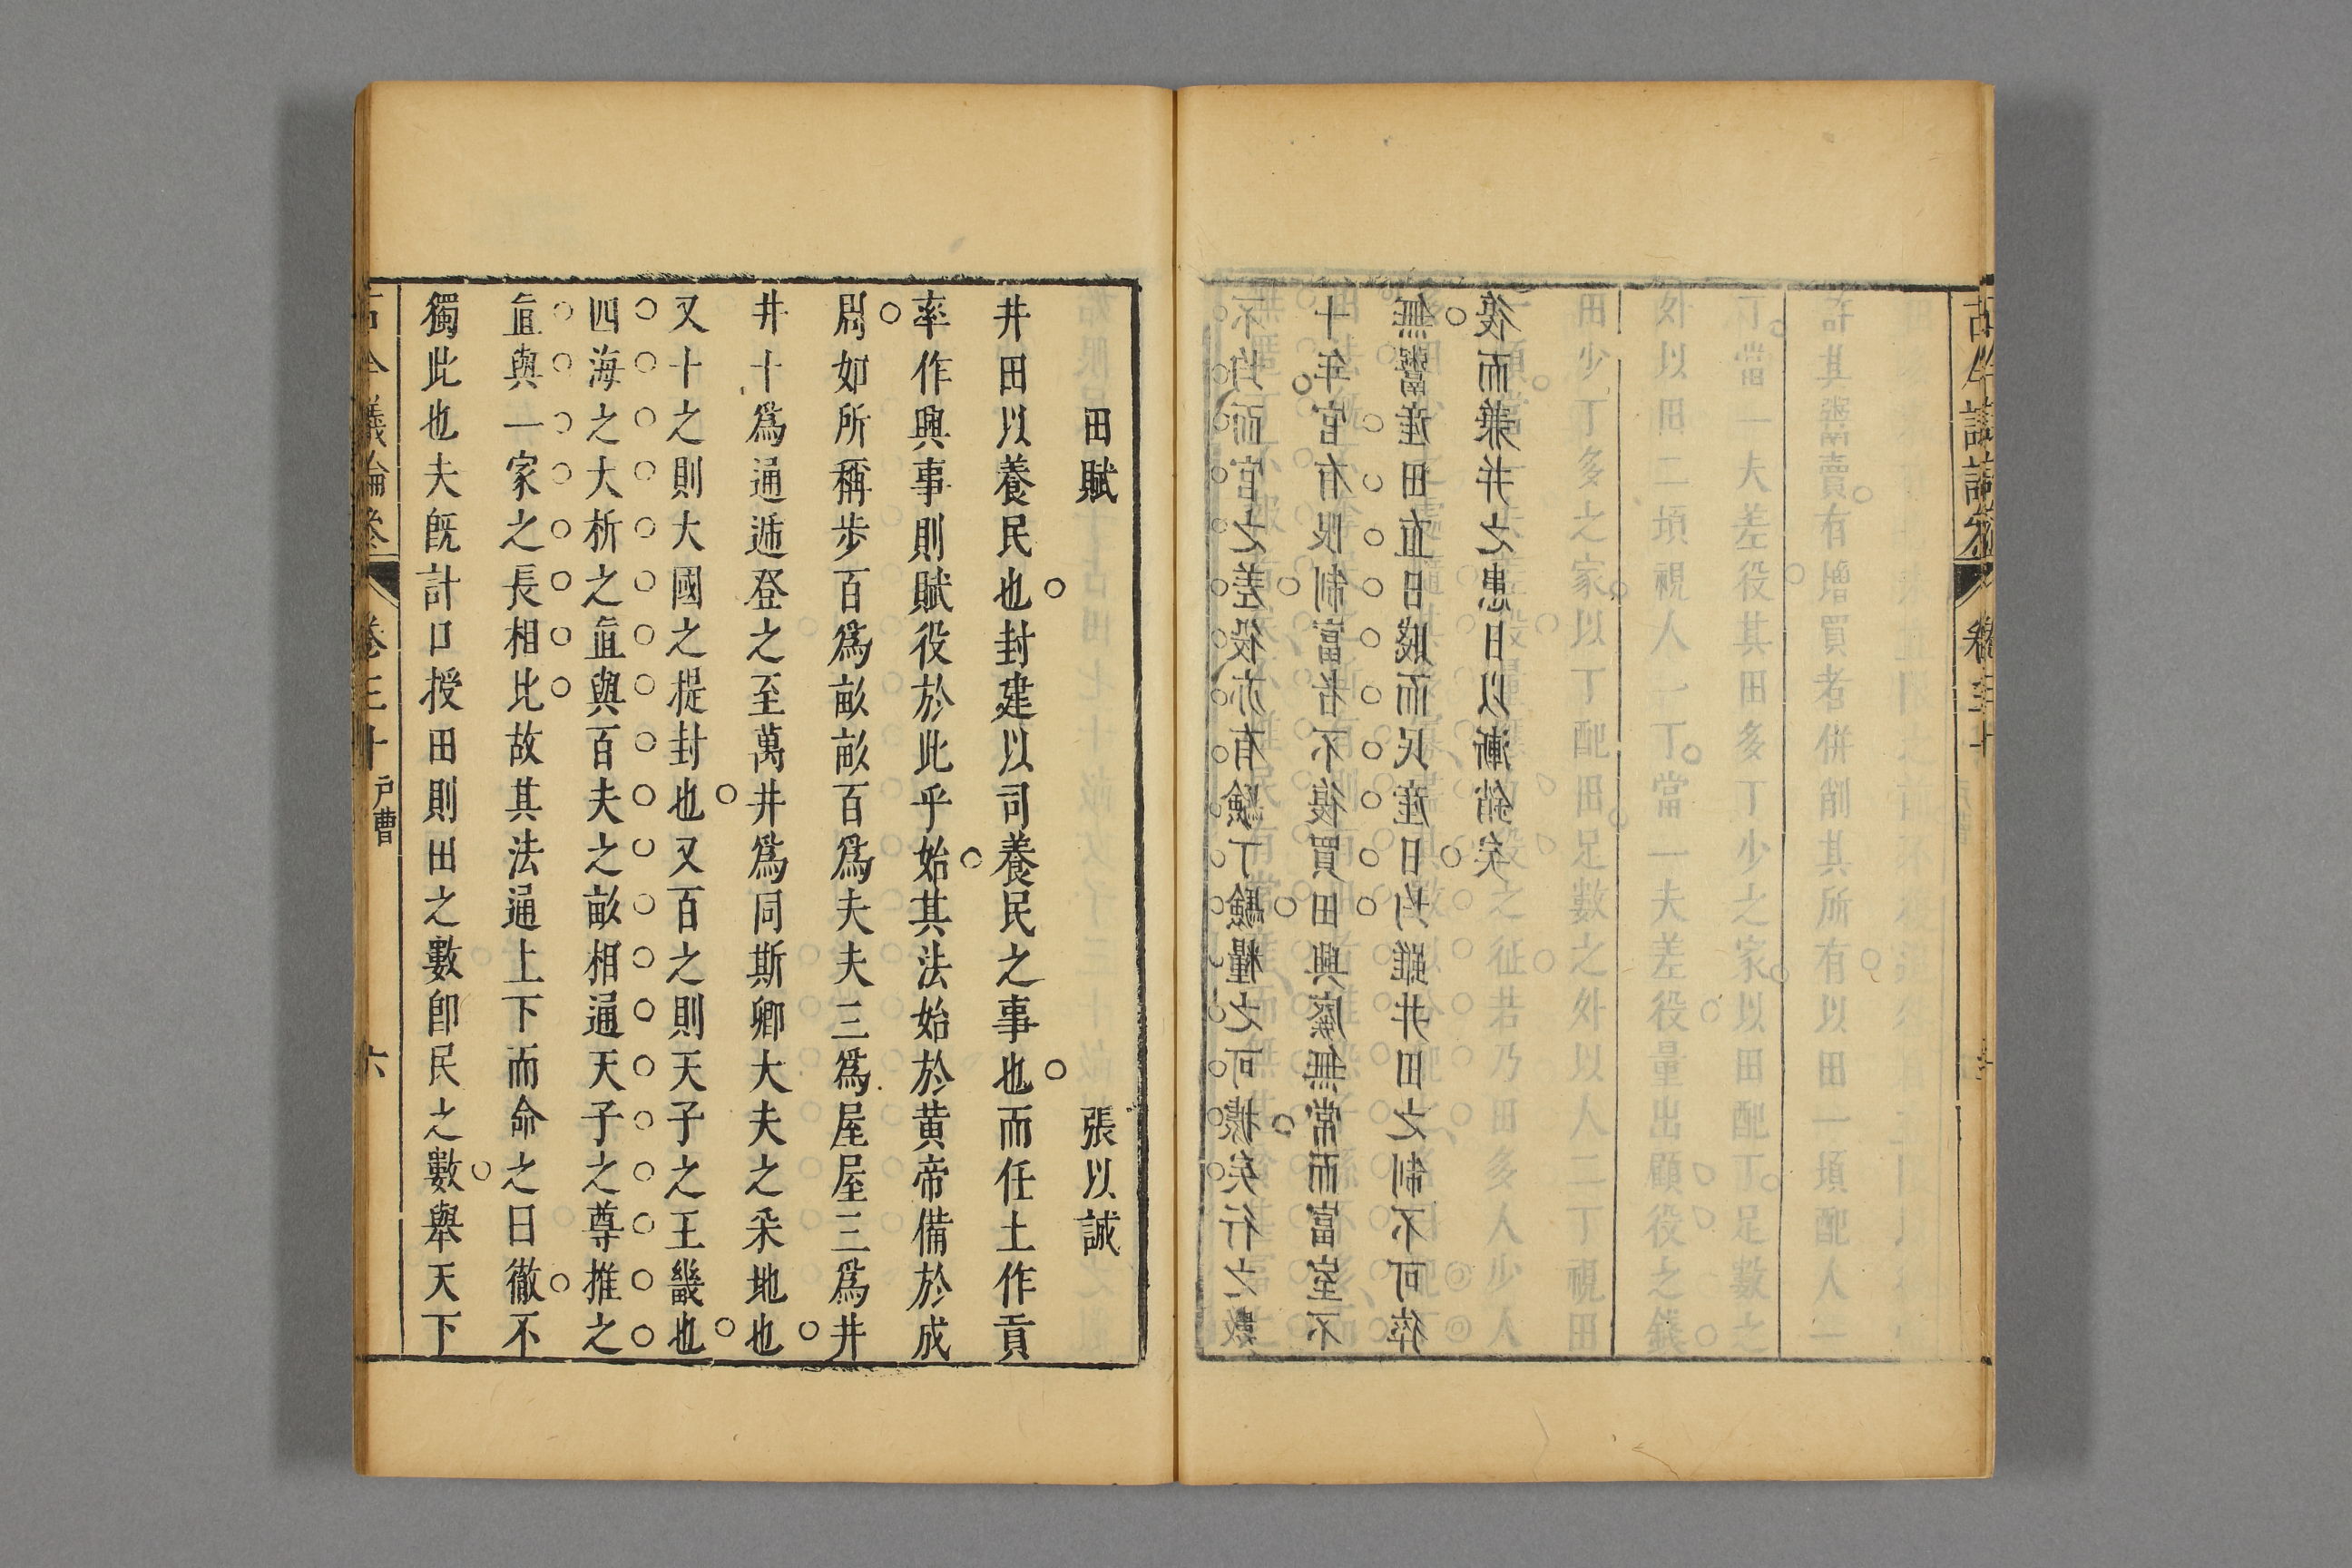 許其鬻賣有增買者併削其所有以田一頃配人一
丁當一夫差役其田多丁少之家以田配丁足數之
外以田二頃視人一丁當一夫差役量出顧役之錢
田少丁多之家以丁配田足數之外以人二丁視田
亦均而官之差役亦有驗丁驗糧之可據矣行之數
十年官有限制富者不復買田興廢無常而富室不
無鬻產田直日賤而民產日均雖井田之制不可猝
復而兼并之患日以漸銷矣
田賦　張以誠
井田以養民也封建以司養民之事也而任土作貢
率作興事則賦役於此乎始其法始於黄帝備於成
周如所稱步百爲畝畝百爲夫夫三爲屋屋三爲井
井十爲通遞登之至萬井爲同斯卿大夫之采地也
又十之則大國之提封也又百之則天子之王畿也
四海之大析之直與百夫之畝相通天子之尊推之
直與一家之長相比故其法通上下而命之曰徹不
獨此也夫旣計口授田則田之數卽民之數舉天下
古今議論參　卷三十　戸曹　六